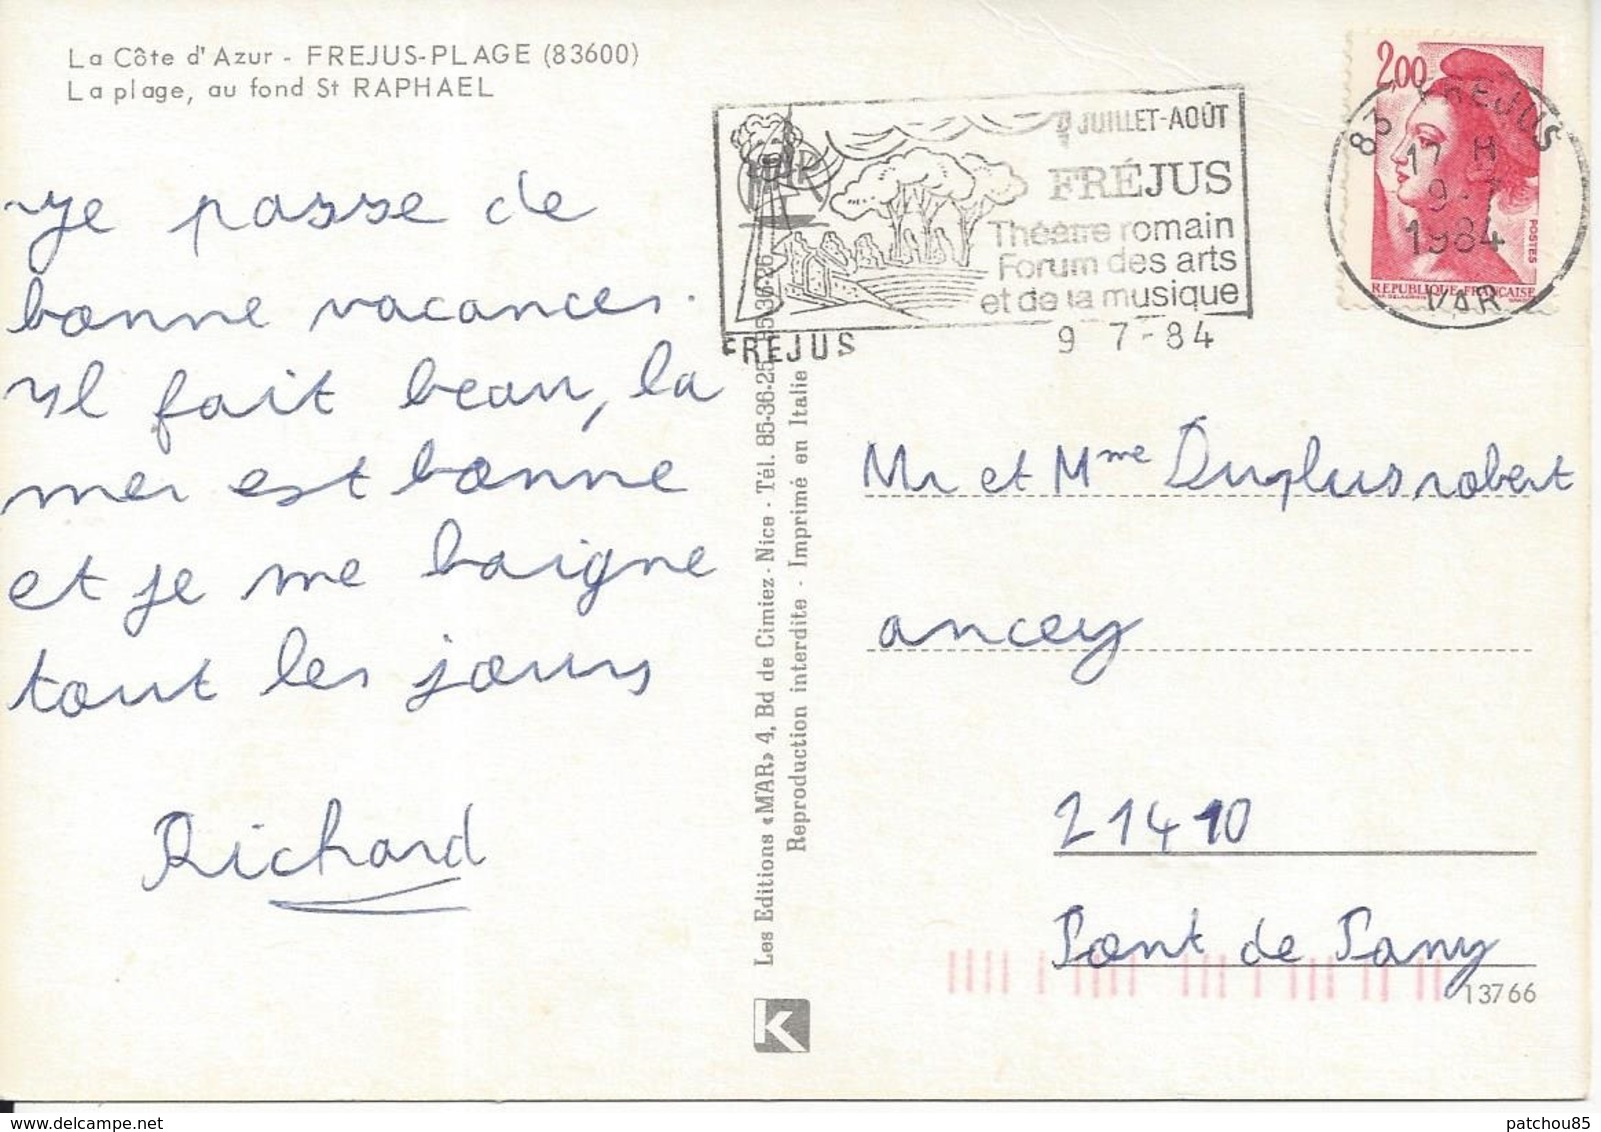 La Côte d'Azur - FREJUS-PLAGE (83600)
La plage, au fond St RAPHAEL
Je passe de
bonne vacances.
Il fait beau, la
mer est bonne
et je me baigne
tout les jours
Richard
JUILLET-AOÛT
FRÉJUS
Théâtre romain
Forum des arts
et de la musique
FREJUS
9 7-84
2,00
POSTES
REPUBLIQUE FRANÇAISE
83 FREJUS
17 H
9-7
1984
VAR
Les Editions «M'AR» 4, Bd de Cimiez - Nice - Tél. 85-36-25
Reproduction interdite - Imprimé en Italie
Mr et Mme Duplus robert
ancey
21410
Pont de Pany
13766
K
patchou85